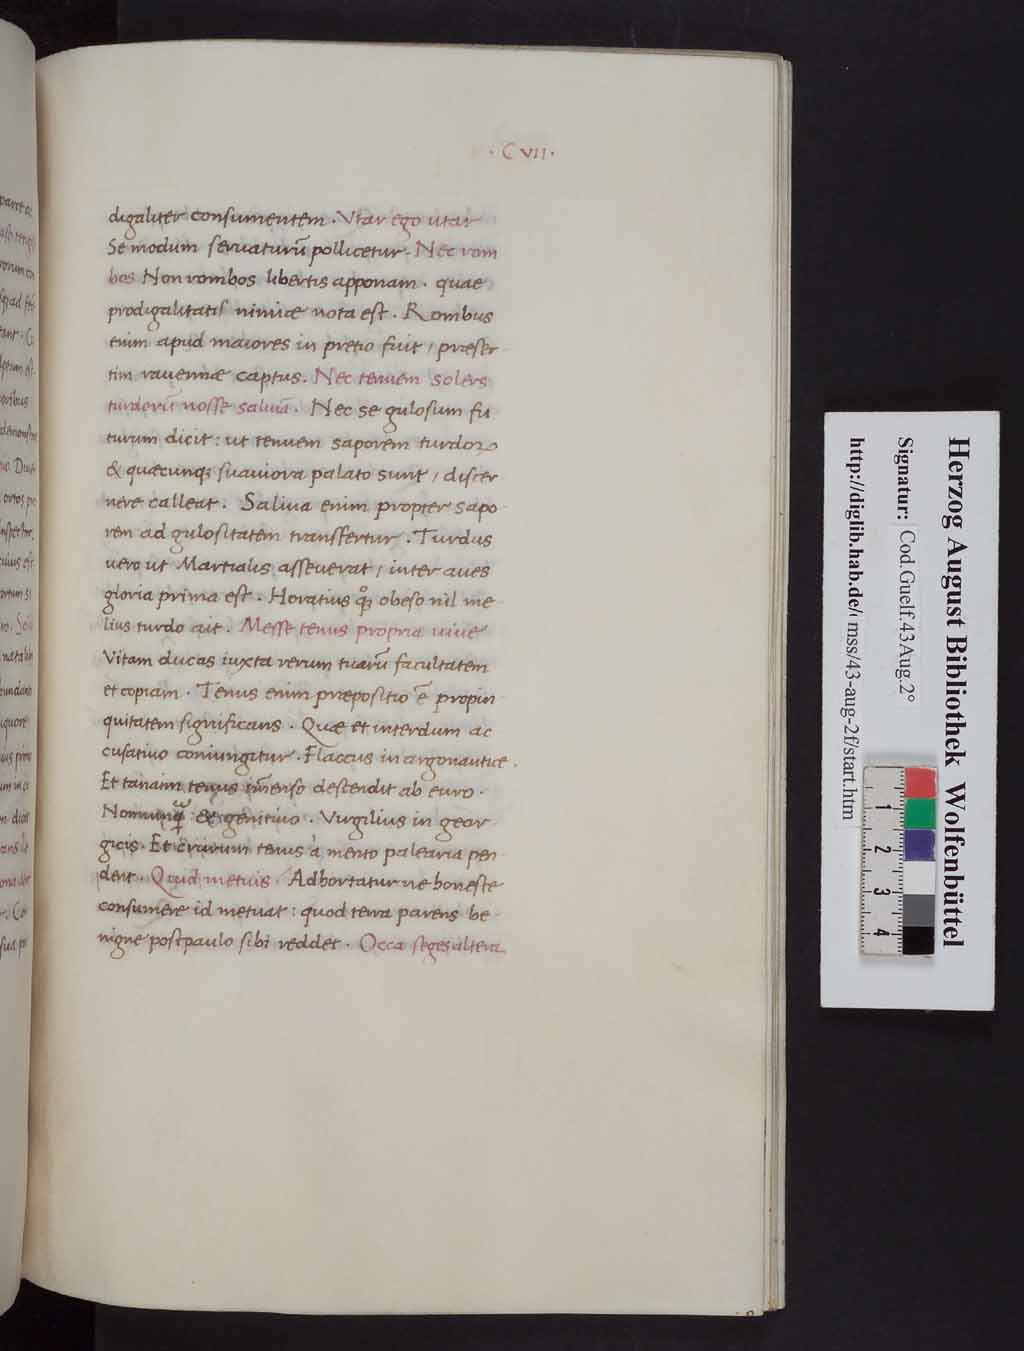 · C VII ·
digaliter consumentem . Vtar ego utar
Se modum seruaturū pollicetur . Nec rom
bos Non rombos libertis apponam . quae
prodigalitatis nimiæ nota est . Rombus
enim apud maiores in pretio fuit / præser
tim rauennæ captus . Nec tenuem solers
turdorū nosse saliuā . Nec se gulosum fu
turum dicit : ut tenuem saporem turdoꝝ
& quæcunqꝫ suauiora palato sunt / discer
nere calleat . Saliua enim propter sapo
rem ad gulositatem transfertur . Turdus
uero ut Martialis asseuerat / inter aues
gloria prima est . Horatius qͦꝫ obeso nil me
lius turdo ait . Messe tenus propria uiue
Vitam ducas iuxta rerum tuarū facultatem
et copiam . Tenus enim præpositio ē propin
quitatem significans . Quæ et interdum ac
cusatiuo coniungitur . Flaccus in argonautice .
Et tanaim tenus īmenso descendit ab euro .
Nonnunqͣ & genitiuo . Virgilius in geor
gicis . Et crurum tenus à mento palearia pen
dent . Quid metuis Adhortatur ne honeste
consumere id metuat : quod terra parens be
nigne post paulo sibi reddet . Occa seges altera
Herzog August Bibliothek Wolfenbüttel
Signatur: Cod.Guelf.43Aug.2°
http://diglib.hab.de/mss/43-aug-2f/start.htm
1 2 3 4